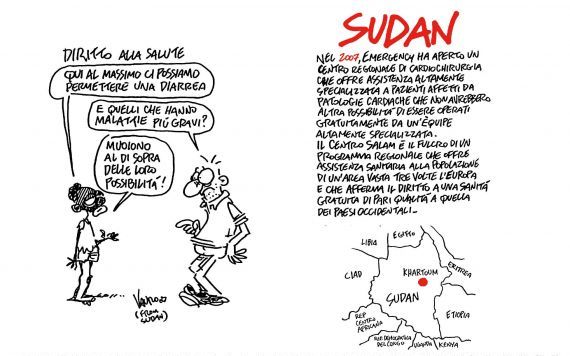 DIRITTO ALLA SALUTE
QUI AL MASSIMO CI POSSIAMO
PERMETTERE UNA DIARREA
E QUELLI CHE HANNO
MALATTIE PIÙ GRAVI?
MUOIONO
AL DI SOPRA
DELLE LORO
POSSIBILITA'!
VAURO 07
(FROM
SUDAN)
SUDAN
NEL 2007, EMERGENCY HA APERTO UN
CENTRO REGIONALE DI CARDIOCHIRURGIA
CHE OFFRE ASSISTENZA ALTAMENTE
SPECIALIZZATA A PAZIENTI AFFETTI DA
PATOLOGIE CARDIACHE CHE NON AVREBBERO
ALTRA POSSIBILITÀ DI ESSERE OPERATI
GRATUITAMENTE DA UN'ÉQUIPE
ALTAMENTE SPECIALIZZATA.
IL CENTRO SALAM È IL FULCRO DI UN
PROGRAMMA REGIONALE CHE OFFRE
ASSISTENZA SANITARIA ALLA POPOLAZIONE
DI UN'AREA VASTA TRE VOLTE L'EUROPA
E CHE AFFERMA IL DIRITTO A UNA SANITÀ
GRATUITA DI PARI QUALITÀ A QUELLA
DEI PAESI OCCIDENTALI...
LIBIA
EGITTO
CIAD
KHARTOUM
ERITREA
SUDAN
ETIOPIA
REP.
CENTRO
AFRICANA
REP. DEMOCRATICA
DEL CONGO
UGANDA
KENYA